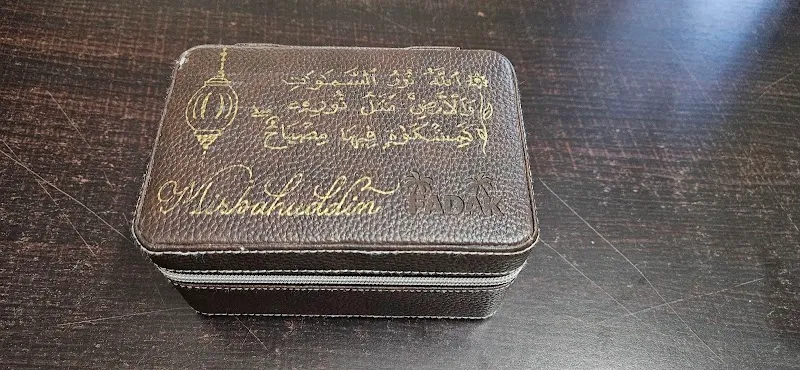 الله نور السموت
والارض مثل نوره
كمشكوة فيها مصباح
Misbahuddin
FADAK